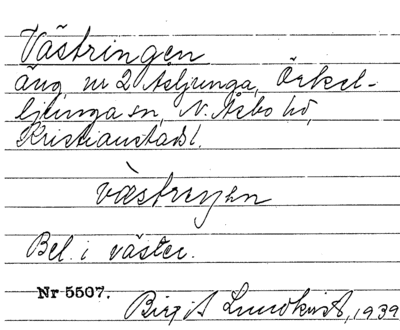 Västringen
äng nr 2 Åsljunga, Örkel-
ljunga sn, N. Åsbo hd,
Kristianstads l.
Bel. i väster.
Nr 5507.
Birgit Lundkvist, 1939